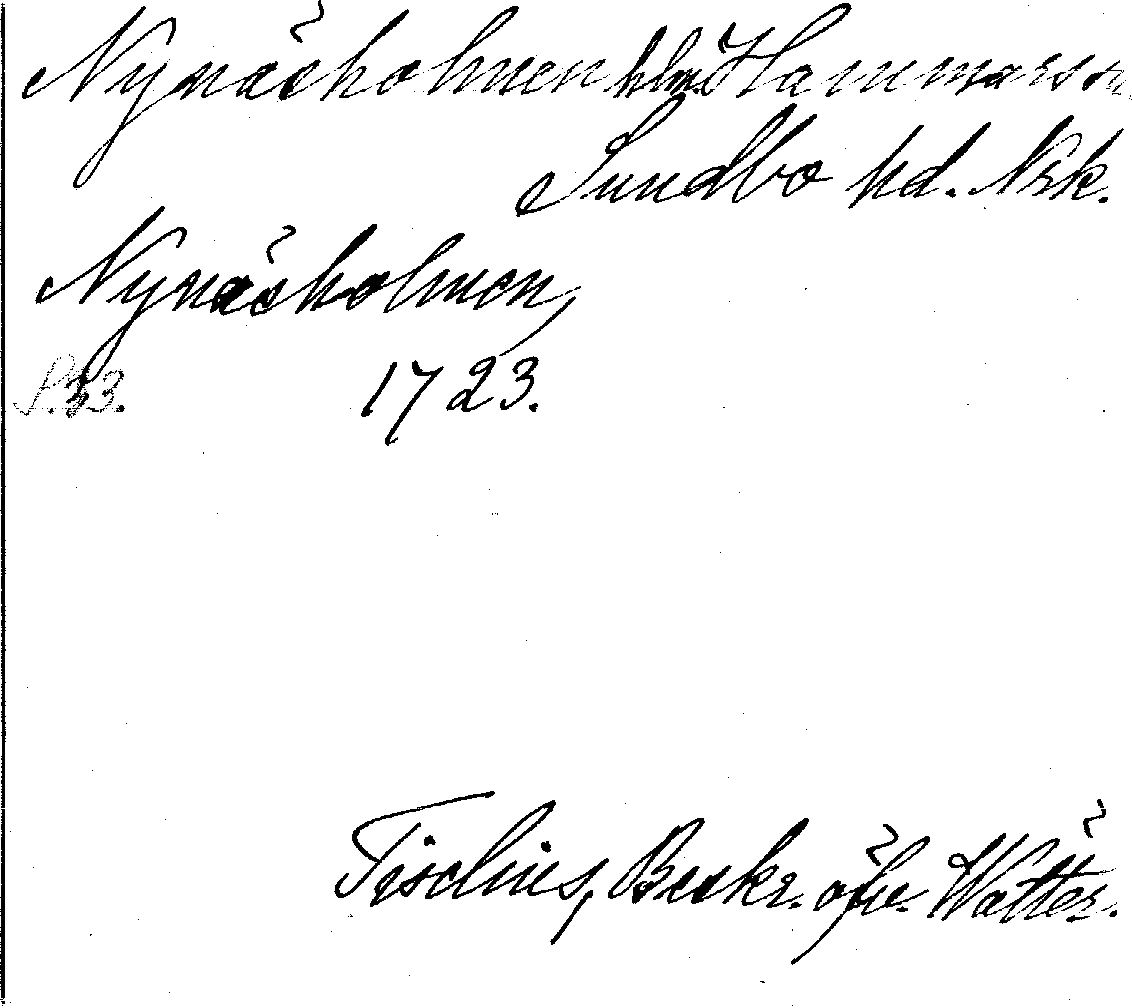 Nynäsholmen hlm Hammars sn
Sundbo hd. Nrk.
Nynäsholmen,
S.33. 1723.
Tiselius, Beskr. öfv. Wätter.